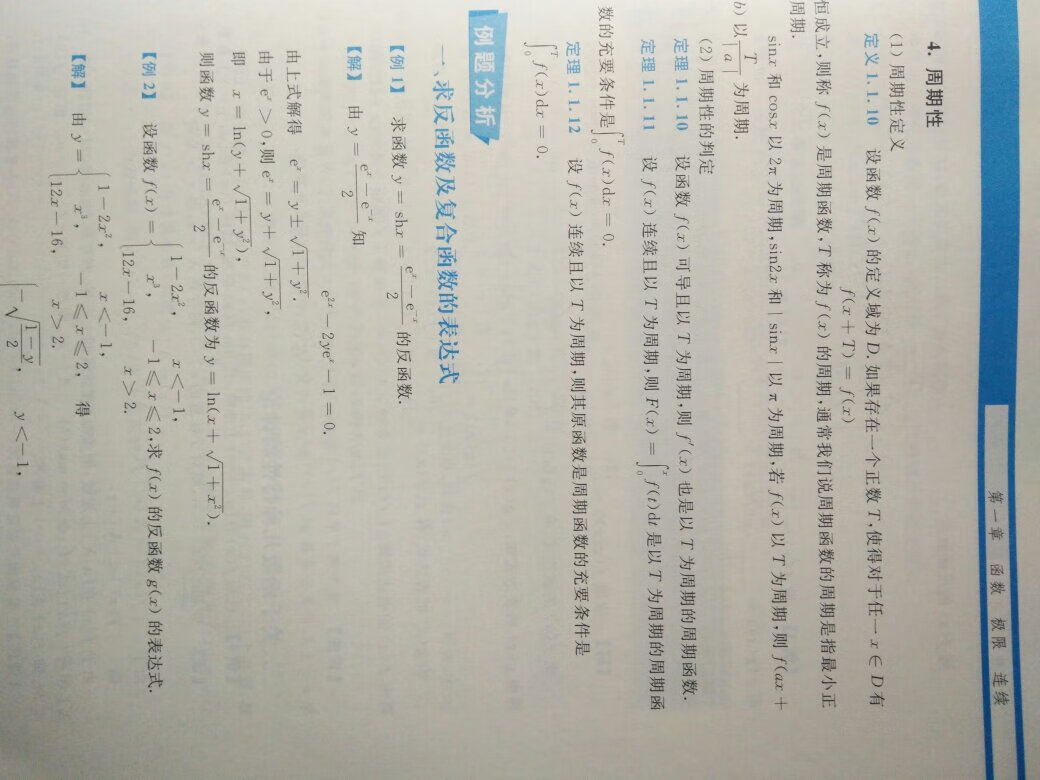 第一章 函数 极限 连续
4. 周期性
(1) 周期性定义
定义 1.1.10 设函数 f(x) 的定义域为 D. 如果存在一个正数 T,使得对于任一 x ∈ D 有
f(x + T) = f(x)
恒成立,则称 f(x) 是周期函数,T 称为 f(x) 的周期,通常我们说周期函数的周期是指最小正
周期.
sinx 和 cosx 以 2π 为周期,sin2x 和 | sinx | 以 π 为周期,若 f(x) 以 T 为周期,则 f(ax +
b) 以 T/|a| 为周期.
(2) 周期性的判定
定理 1.1.10 设函数 f(x) 可导且以 T 为周期,则 f′(x) 也是以 T 为周期的周期函数.
定理 1.1.11 设 f(x) 连续且以 T 为周期,则 F(x) = ∫₀ˣ f(t)dt 是以 T 为周期的周期函
数的充要条件是∫₀ᵀ f(x)dx = 0.
定理 1.1.12 设 f(x) 连续且以 T 为周期,则其原函数是周期函数的充要条件是
∫₀ᵀ f(x)dx = 0.
例题分析
一、求反函数及复合函数的表达式
【例 1】 求函数 y = shx = (eˣ − e⁻ˣ)/2 的反函数.
【解】 由 y = (eˣ − e⁻ˣ)/2 知
e²ˣ − 2yeˣ − 1 = 0.
由上式解得 eˣ = y ± √(1 + y²).
由于 eˣ > 0,则 eˣ = y + √(1 + y²),
即 x = ln(y + √(1 + y²)),
则函数 y = shx = (eˣ − e⁻ˣ)/2 的反函数为 y = ln(x + √(1 + x²)).
【例 2】 设函数 f(x) = { 1 − 2x², x < −1,
x³, −1 ≤ x ≤ 2,求 f(x) 的反函数 g(x) 的表达式.
12x − 16, x > 2.
【解】 由 y = { 1 − 2x², x < −1,
x³, −1 ≤ x ≤ 2, 得
12x − 16, x > 2.
−√((1 − y)/2), y < −1,